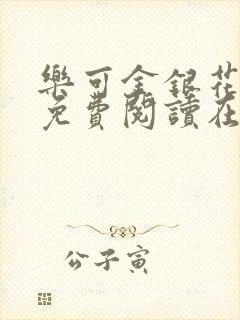 樂可金銀花
免費閱讀在
公子寅